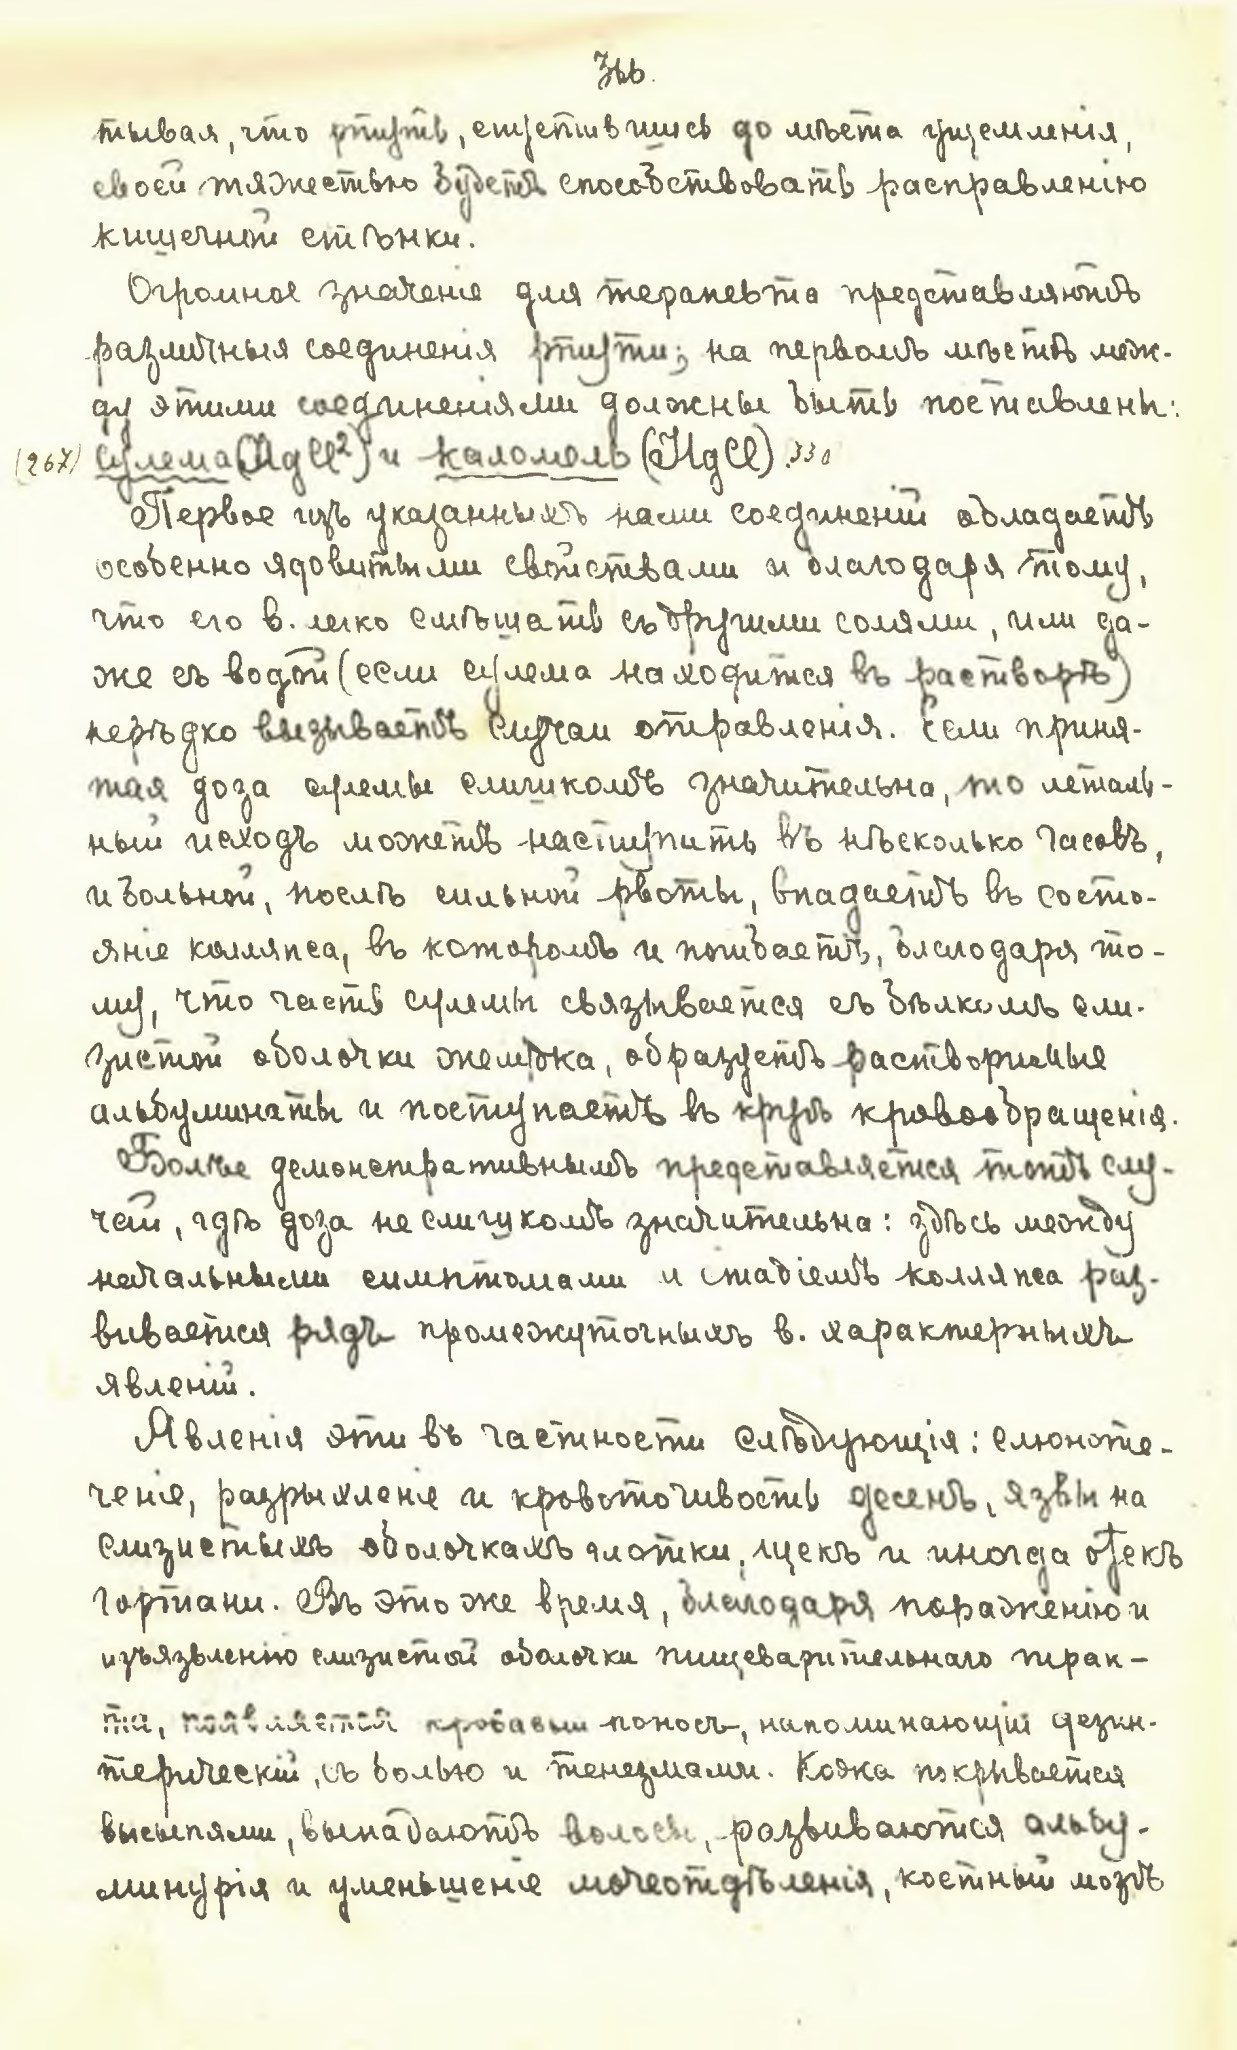 тывая, что ртуть, спустившись до мѣста ущемленія,
своей тяжестью будетъ способствовать расправленію
кишечной стѣнки.
Огромное значеніе для терапевта представляютъ
различныя соединенія ртути; на первомъ мѣстѣ меж-
ду этими соединеніями должны быть поставлены:
(267) сулема (HgCl²) и каломель (HgCl). 330
Первое изъ указанныхъ нами соединеній обладаетъ
особенно ядовитыми свойствами и благодаря тому,
что его в. легко смѣшать съ другими солями, или да-
же съ водой (если сулема находится въ растворѣ)
нерѣдко вызываетъ случаи отравленія. Если приня-
тая доза сулемы слишкомъ значительна, то леталь-
ный исходъ можетъ наступить въ нѣсколько часовъ,
и больной, послѣ сильной рвоты, впадаетъ въ состо-
яніе колляпса, въ которомъ и погибаетъ, благодаря то-
му, что часть сулемы связывается съ бѣлкомъ сли-
зистой оболочки желудка, образуетъ растворимые
альбуминаты и поступаетъ въ кругъ кровообращенія.
Болѣе демонстративнымъ представляется тотъ слу-
чай, гдѣ доза не слишкомъ значительна: здѣсь между
начальными симптомами и стадіемъ колляпса раз-
вивается рядъ промежуточныхъ в. характерныхъ
явленій.
Явленія эти въ частности слѣдующія: слюноте-
ченіе, разрыхленіе и кровоточивость десенъ, язвы на
слизистыхъ оболочкахъ глотки, щекъ и иногда отекъ
гортани. Въ это же время, благодаря пораженію и
изъязвленію слизистой оболочки пищеварительнаго трак-
та, появляется кровавый поносъ, напоминающій дезин-
терическій, съ болью и тенезмами. Кожа покрывается
высыпями, выпадаютъ волосы, развиваются альбу-
минурія и уменьшеніе мочеотдѣленія, костный мозгъ